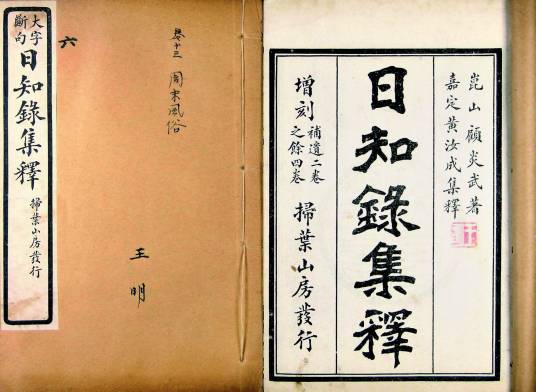 大字
斷句
日知錄集釋
掃葉山房發行
六
卷十三
周末風俗
王明
崑山顧炎武著
嘉定黃汝成集釋
日知錄集釋
增刻
補遺二卷
之餘四卷
掃葉山房發行